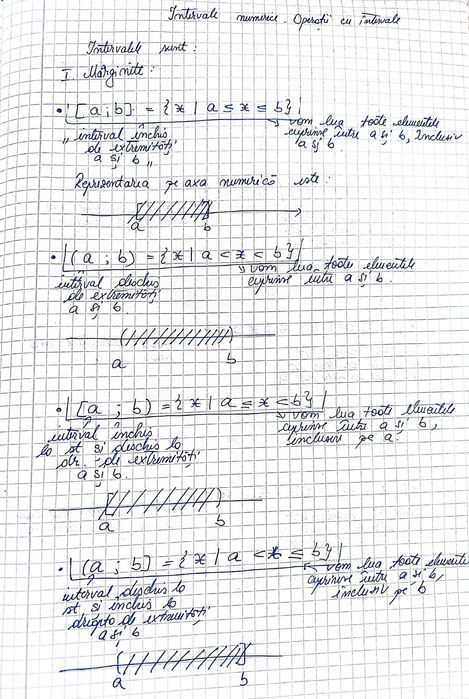 Intervale numerice. Operații cu intervale
Intervalele sunt:
I. Mărginite:
• [a;b] = {x | a ≤ x ≤ b}
→ vom lua toate elementele
cuprinse între a și b, inclusiv
a și b.
„interval închis
de extremități
a și b„
Reprezentarea pe axa numerică este:
a b
• (a ; b) = {x | a < x < b}
→ vom lua toate elementele
cuprinse între a și b.
interval deschis
de extremități
a și b
a b
• [a ; b) = {x | a ≤ x < b}
→ vom lua toate elementele
cuprinse între a și b,
inclusiv pe a.
interval închis
la st și deschis la
dr. de extremități
a și b.
a b
• (a ; b] = {x | a < x ≤ b}
→ vom lua toate elemente
cuprinse între a și b,
inclusiv pe b
interval deschis la
st și închis la
dreapta de extremități
a și b
a b